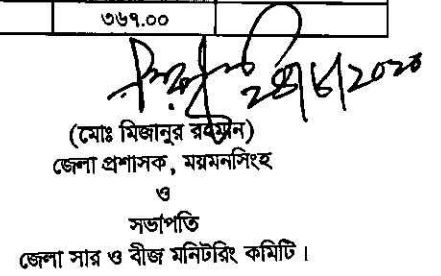 ৩৬৭.০০
(মোঃ মিজানুর রহমান)
জেলা প্রশাসক, ময়মনসিংহ
ও
সভাপতি
জেলা সার ও বীজ মনিটরিং কমিটি।